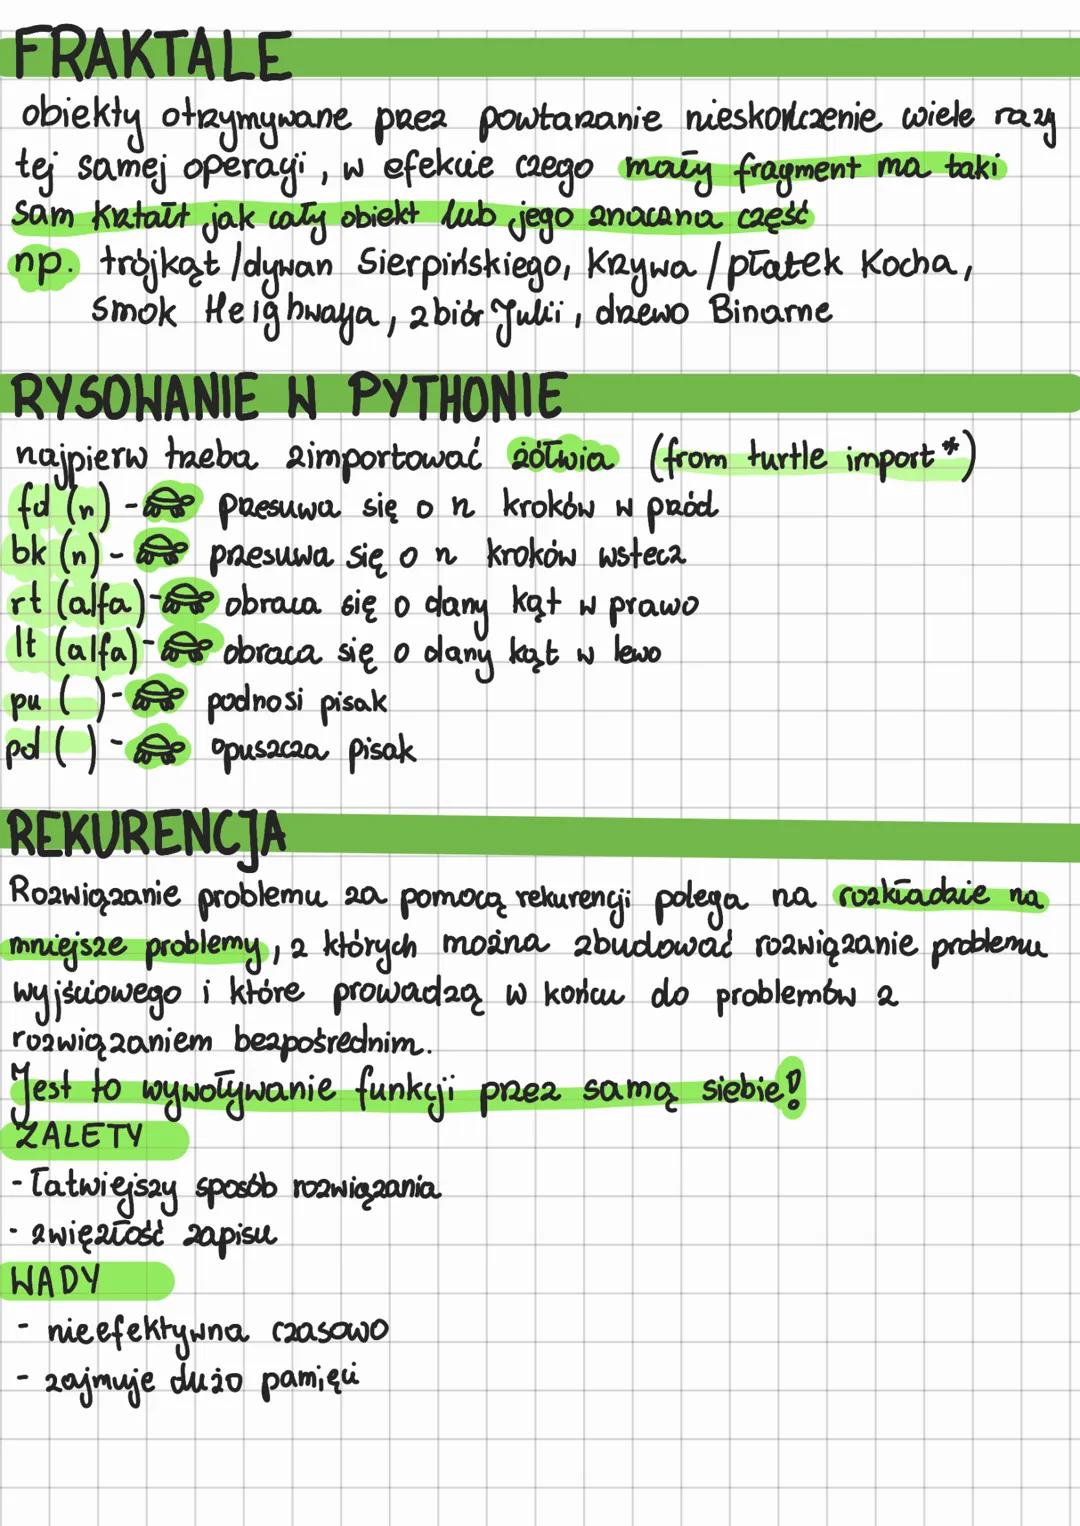 FRAKTALE
obiekty otrzymywane przez powtarzanie nieskończenie wiele razy
tej samej operacji, w efekcie czego mały fragment ma taki
sam kształt jak cały obiekt lub jego znaczna część
np. trójkąt/dywan Sierpińskiego, krzywa/płatek Kocha,
smok Heighwaya, zbiór Julii, drzewo Binarne
RYSOWANIE W PYTHONIE
najpierw trzeba zimportować żółwia (from turtle import*)
fd (n) - przesuwa się o n kroków w przód
bk (n) - przesuwa się o n kroków wstecz
rt (alfa) - obraca się o dany kąt w prawo
lt (alfa) - obraca się o dany kąt w lewo
pu ( ) - podnosi pisak
pd ( ) - opuszcza pisak
REKURENCJA
Rozwiązanie problemu za pomocą rekurencji polega na rozkładzie na
mniejsze problemy, z których można zbudować rozwiązanie problemu
wyjściowego i które prowadzą w końcu do problemów z
rozwiązaniem bezpośrednim.
Jest to wywoływanie funkcji przez samą siebie!
ZALETY
- łatwiejszy sposób rozwiązania
- zwięzłość zapisu
WADY
- nieefektywna czasowo
- zajmuje dużo pamięci